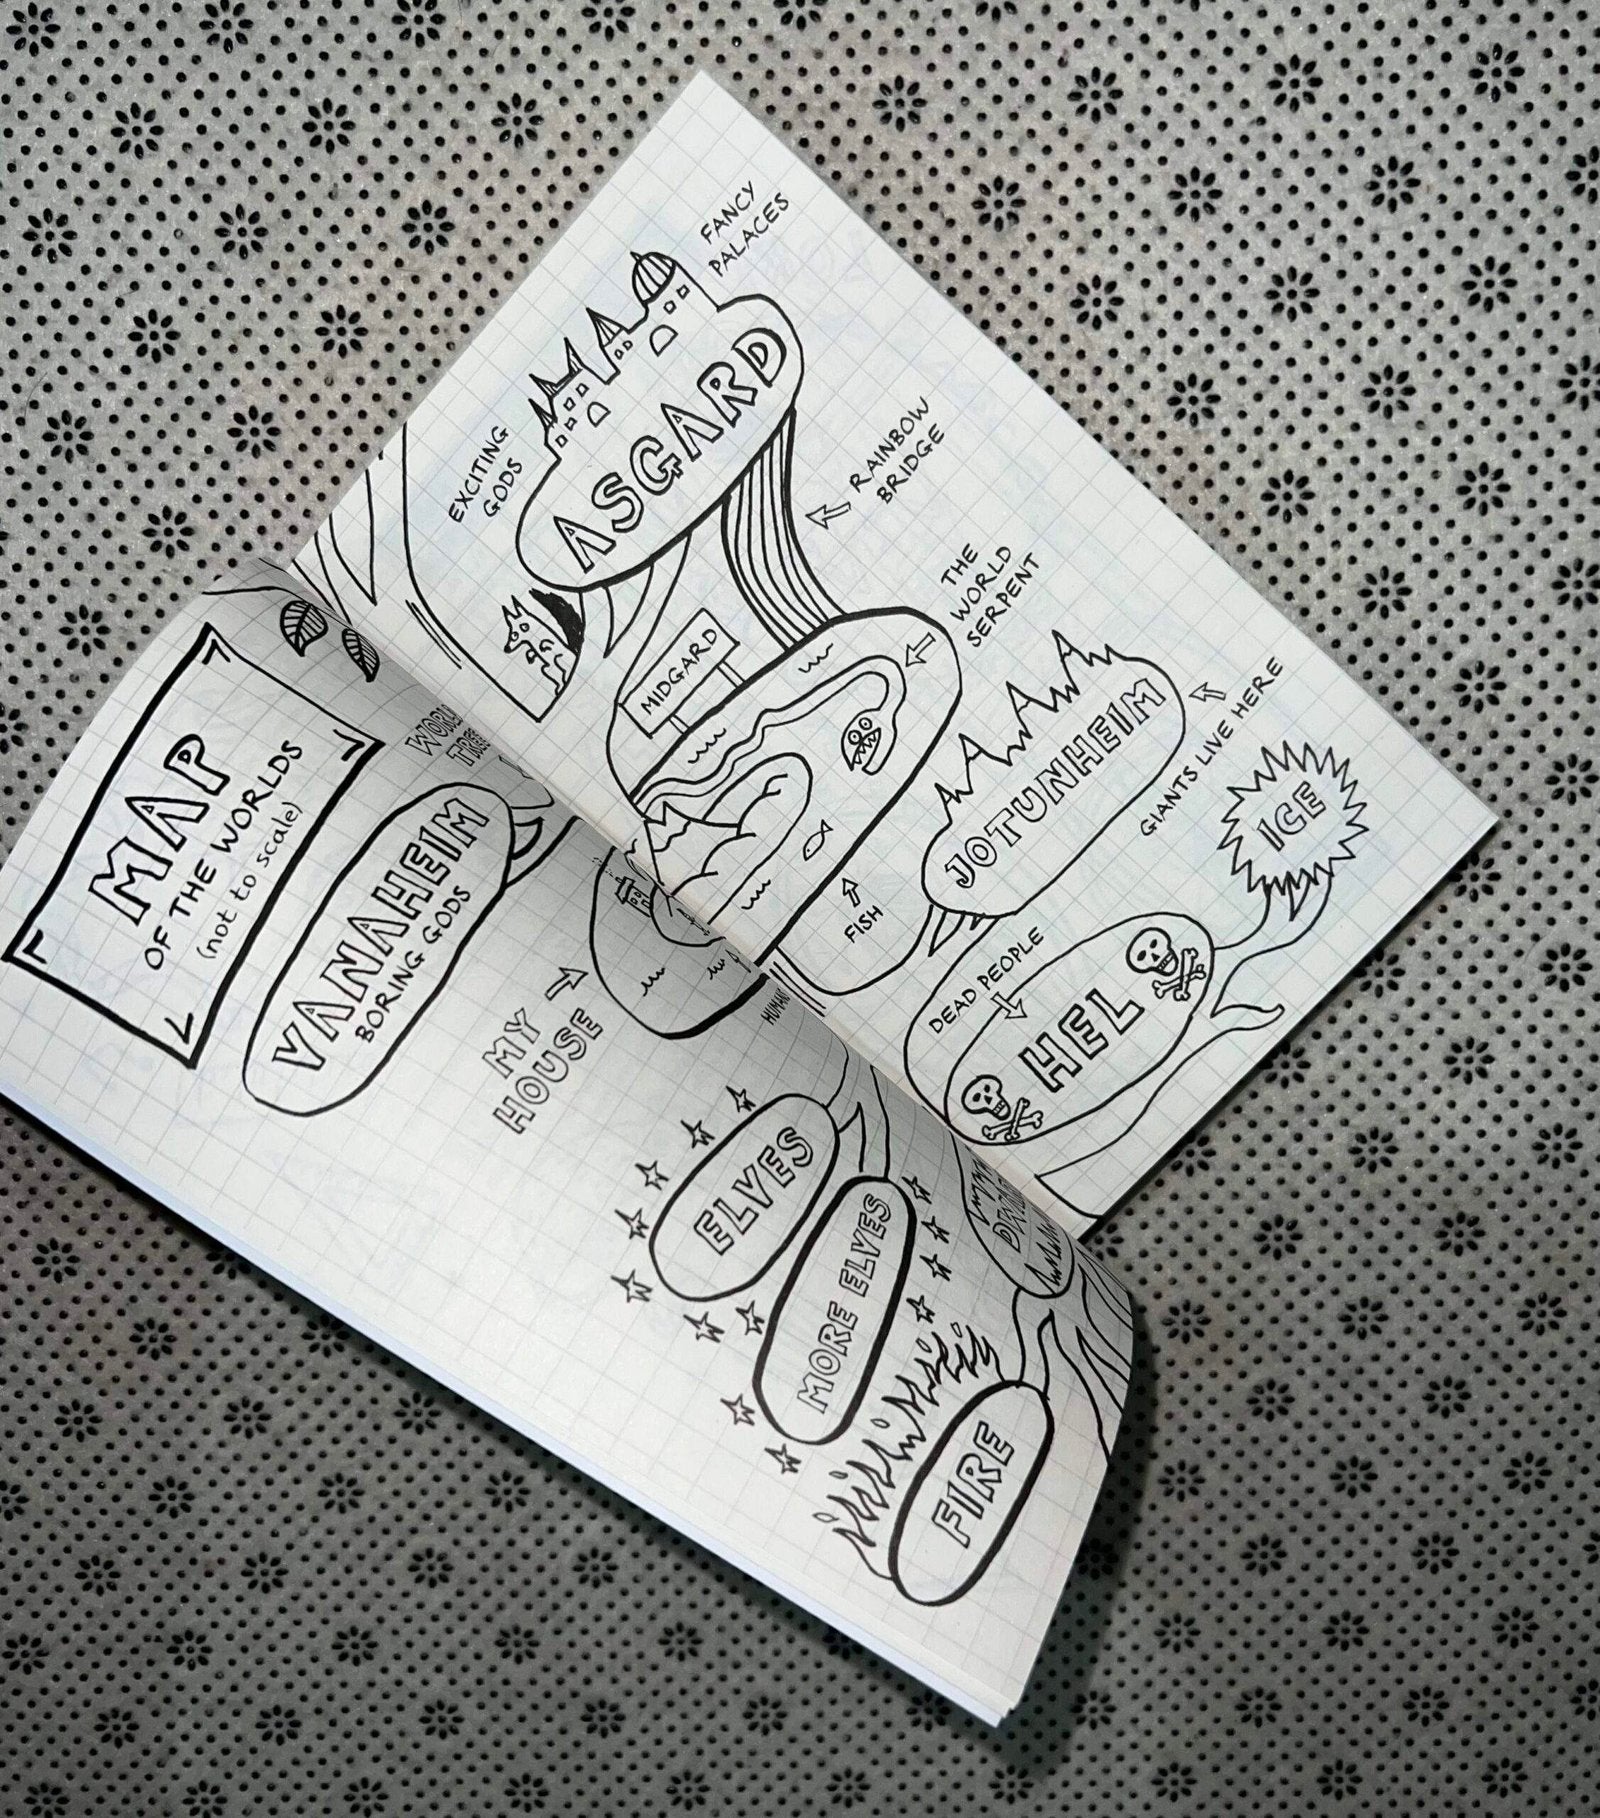 MAP
OF THE WORLDS
(not to scale)
VANAHEIM
BORING GODS
MY
HOUSE
ELVES
MORE ELVES
FIRE
EXCITING
GODS
FANCY
PALACES
ASGARD
RAINBOW
BRIDGE
MIDGARD
THE
WORLD
SERPENT
FISH
JOTUNHEIM
GIANTS LIVE HERE
ICE
DEAD PEOPLE
HEL